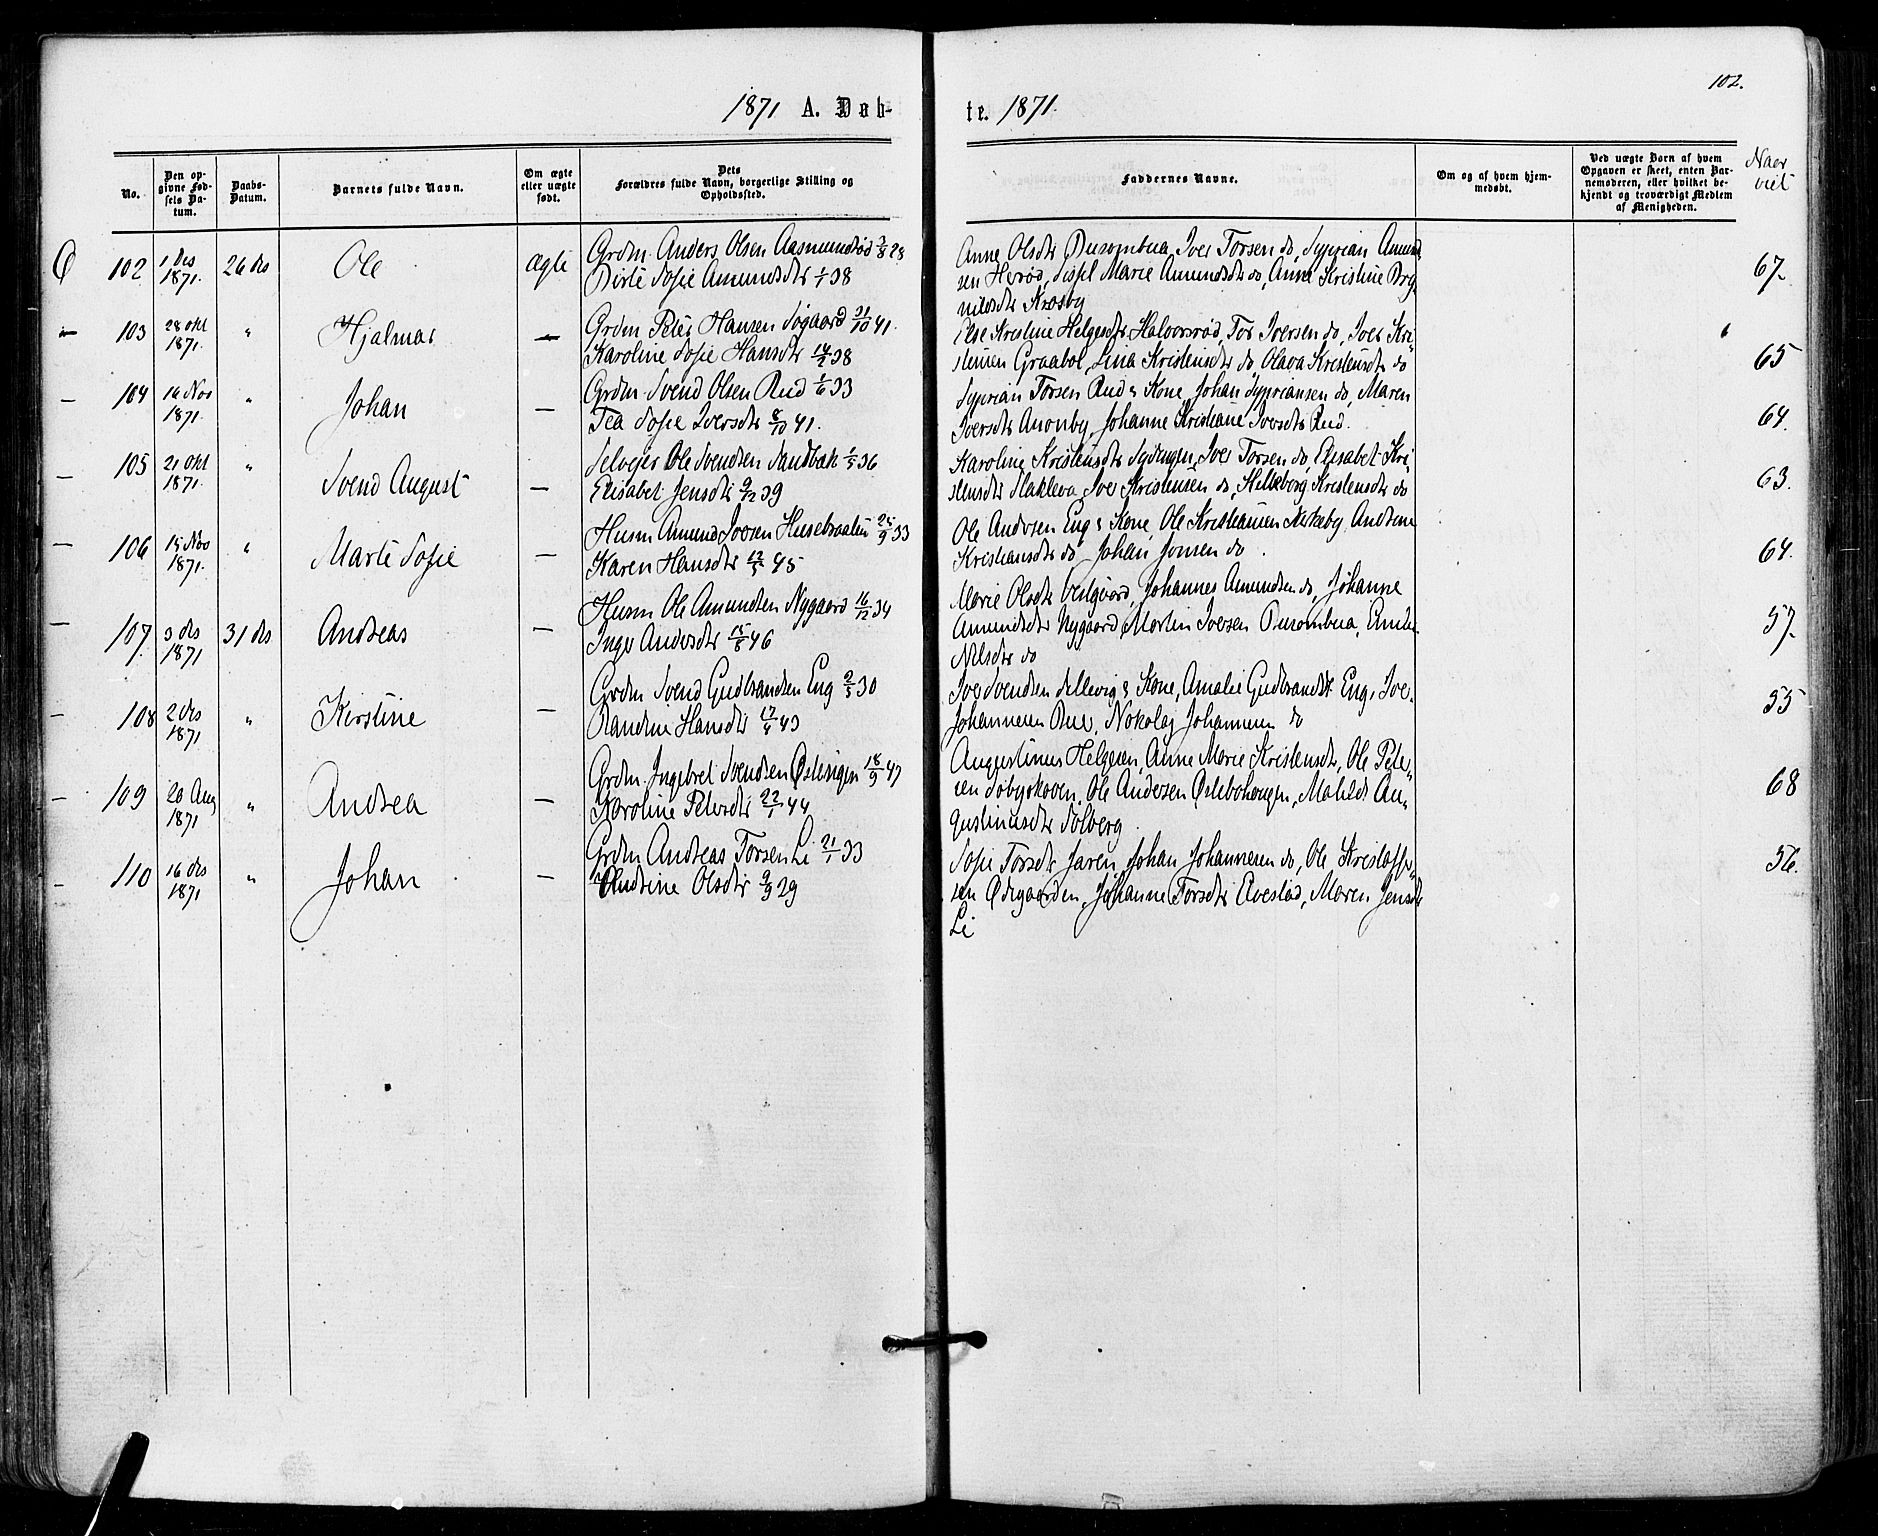 102.
1871 A. Døb-
te. 1871.
No.
Den op-
givne Fød-
sels Da-
tum.
Daabs-
Datum.
Barnets fulde Navn.
Om ægte
eller uægte
født.
Dets
Forældres fulde Navn, borgerlige Stilling og
Opholdssted.
Faddernes Navne.
Om og af hvem hjem-
medøbt.
Ved uægte Børn af hvem
Opgaven er skeet, enten Bar-
nemoderen, eller hvilket be-
kjendt og troværdigt Medlem
af Menigheden.
Naar
viet
102 1 des 1871. 26 des Ole ægte
Grdm. Anders Olsen Aasmundrød 3/8 28
Birte Sofie Amundsdtr 1/1 38
Anne Olsdtr Iver Torsen do, Syprian Amund
sen Herød, Sissel Marie Amundsdtr do, Anne Kristine
Krosby
67.
103 28 okt 1871. " Hjalmar —
Grdm Peter Hansen Søgaard 31/10 41.
Karoline Sofie Hansdtr 14/2 38
Else Kristine Helgesdtr Halvorsrød, Tor Iversen do, Iver Kri-
stensen Graabøl, Lina Kristensdtr do, Olava Kristensdtr do
65
104 16 Nov 1871. " Johan —
Grdm Svend Olsen Rud 1/6 33
Tea Sofie Iversdtr 8/10 41.
Syprian Torsen Rud & Kone, Johan Sypriansen do, Maren
Iversdtr Johanne Kristiane Iversdtr Rud.
64.
105 21 okt 1871. " Svend August —
Selvejer Ole Svendsen Sandbæk 1/5 36
Elisabet Jensdtr 9/12 39
Karoline Kristensdtr Iver Torsen do, Elisabet Kri
stensdtr Slakleva, Iver Kristensen do, Kristensdtr do
63.
106 15 Nov 1871. " Marte Sofie —
Husm Amund Iversen Husebraaten 25/9 33
Karen Hansdtr 12/5 45
Ole Andersen Eng & Kone, Ole Kristiansen Andrine
Kristiansdtr do, Johan Jonsen do.
64.
107. 3 des 1871 31 des Andreas —
Husm Ole Amundsen Nygaard 16/12 34
Inge Andersdtr 15/8 46
Marie Olsdtr Vestgaard, Johannes Amundsen do, Johanne
Amundsdtr Nygaard, Martin Iversen Emilie
Nilsdtr do
57.
108 2 des 1871 " Kirstine —
Grdm Svend Gudbrandsen Eng 2/5 30
Randine Hansdtr 17/4 43
Iver Svendsen & Kone, Amalie Gudbrandsdtr Eng, Iver
Johannesen Nokolaj Johannesen do
55
109 20 Aug 1871 " Andrea —
Grdm. Ingebret Svendsen Østengen 18/9 47
Karoline Petersdtr 22/1 44
Augustinus Helgesen, Anne Marie Kristensdtr, Ole Peter-
sen Søbyskoven, Ole Andersen Matilde Au-
gustinusdtr Solberg.
68
110 16 des 1871 " Johan —
Grdm Andreas Torsen Li 21/1 33
Andrine Olsdtr 9/9 29
Sofie Torsdtr Jaren, Johan Johannesen do, Ole Kristoffer-
sen Ødegaarden, Johanne Torsdtr Elvestad, Maren Jensdtr
Li
56.